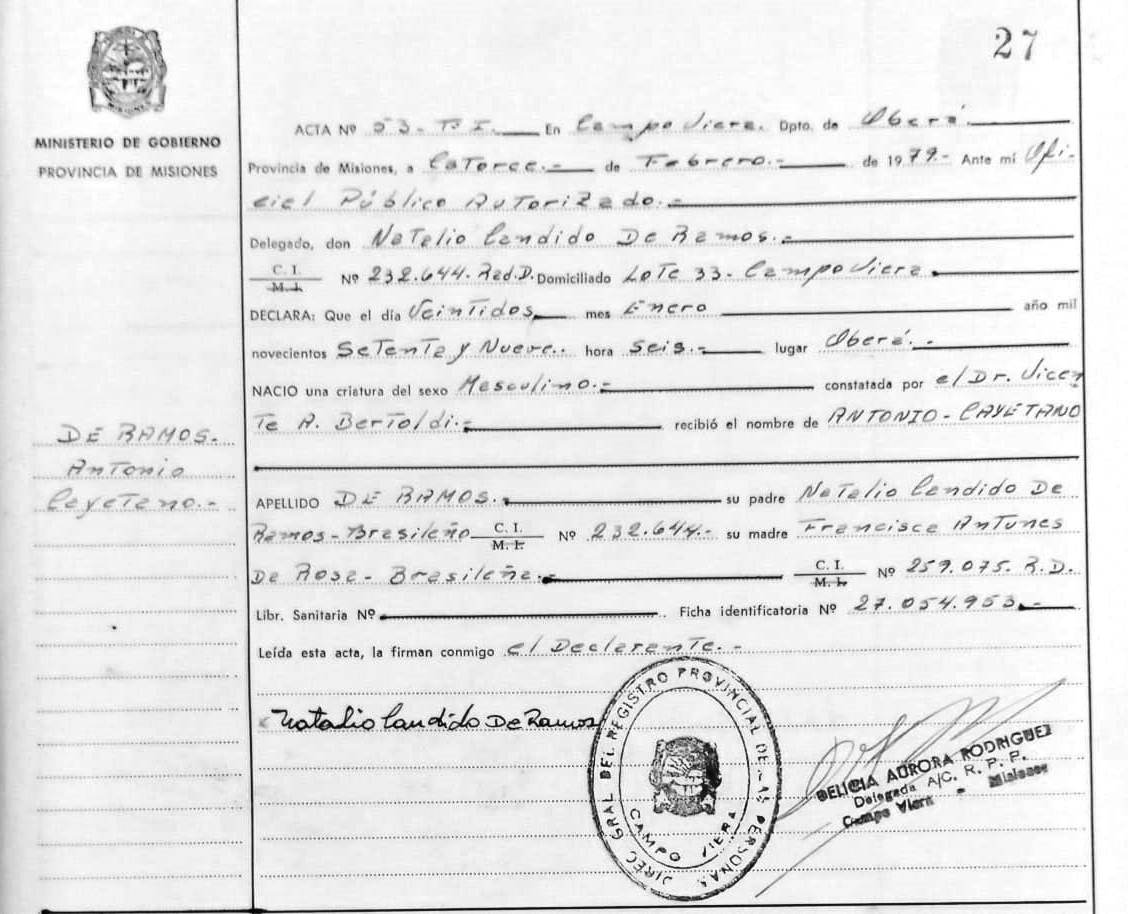 27
MINISTERIO DE GOBIERNO
PROVINCIA DE MISIONES
ACTA Nº 53-T°I. En Campo Viera. Dpto. de Oberá.
Provincia de Misiones, a Catorce.- de Febrero.- de 1979.- Ante mí Ofi-
cial Público Autorizado.-
Delegado, don Natalio Candido De Ramos.-
C. I. M. I. Nº 232.644. Red.D. Domiciliado Lote 33- Campo Viera.
DECLARA: Que el día Veintidos mes Enero año mil
novecientos Setenta y Nueve.. hora seis.- lugar Oberá.-
NACIO una criatura del sexo Masculino.- constatada por el Dr. Vicen
te A. Bertoldi.- recibió el nombre de ANTONIO-CAYETANO
DE RAMOS.
Antonio
Cayetano.-
APELLIDO DE RAMOS. su padre Natalio Candido De
Ramos-Brasileño C. I. M. I. Nº 232.644.- su madre Francisca Antunes
De Rosa- Brasileña.- C. I. M. I. Nº 259.075. R.D.
Libr. Sanitaria Nº Ficha identificatoria Nº 27.054.953.-
Leída esta acta, la firman conmigo el Declarante.-
Natalio Candido De Ramos
DIREC. GRAL. DEL REGISTRO PROVINCIAL DE LAS PERSONAS
CAMPO VIERA
DELICIA AURORA RODRIGUEZ
Delegada A/C. R. P. P.
Campo Viera - Misiones